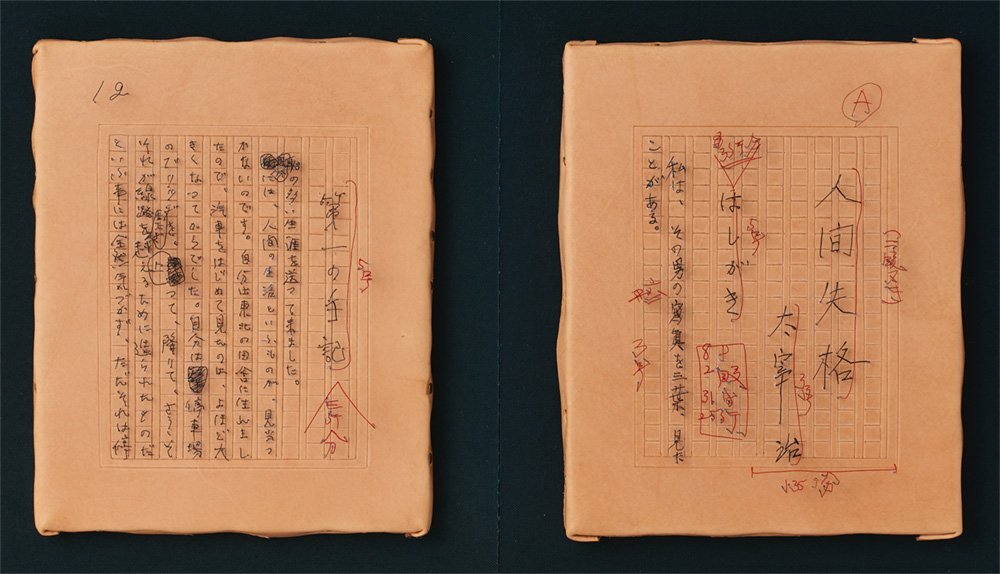 A
人間失格
太宰治
はしがき
私は、その男の寫眞を三葉、見た
ことがある。
12
第一の手記
5号
恥の多い生涯を送つて来ました。
には、人間の生活といふものが、見当つ
かないのです。自分は東北の田舎に生れまし
たので、汽車をはじめて見たのは、よほど大
きくなつてからでした。自分は停車場
のブリッヂを、上つて、降りて、さうして
それが線路をまたぎ越えるために造られたものだ
といふ事には全然気づかず、ただそれは停